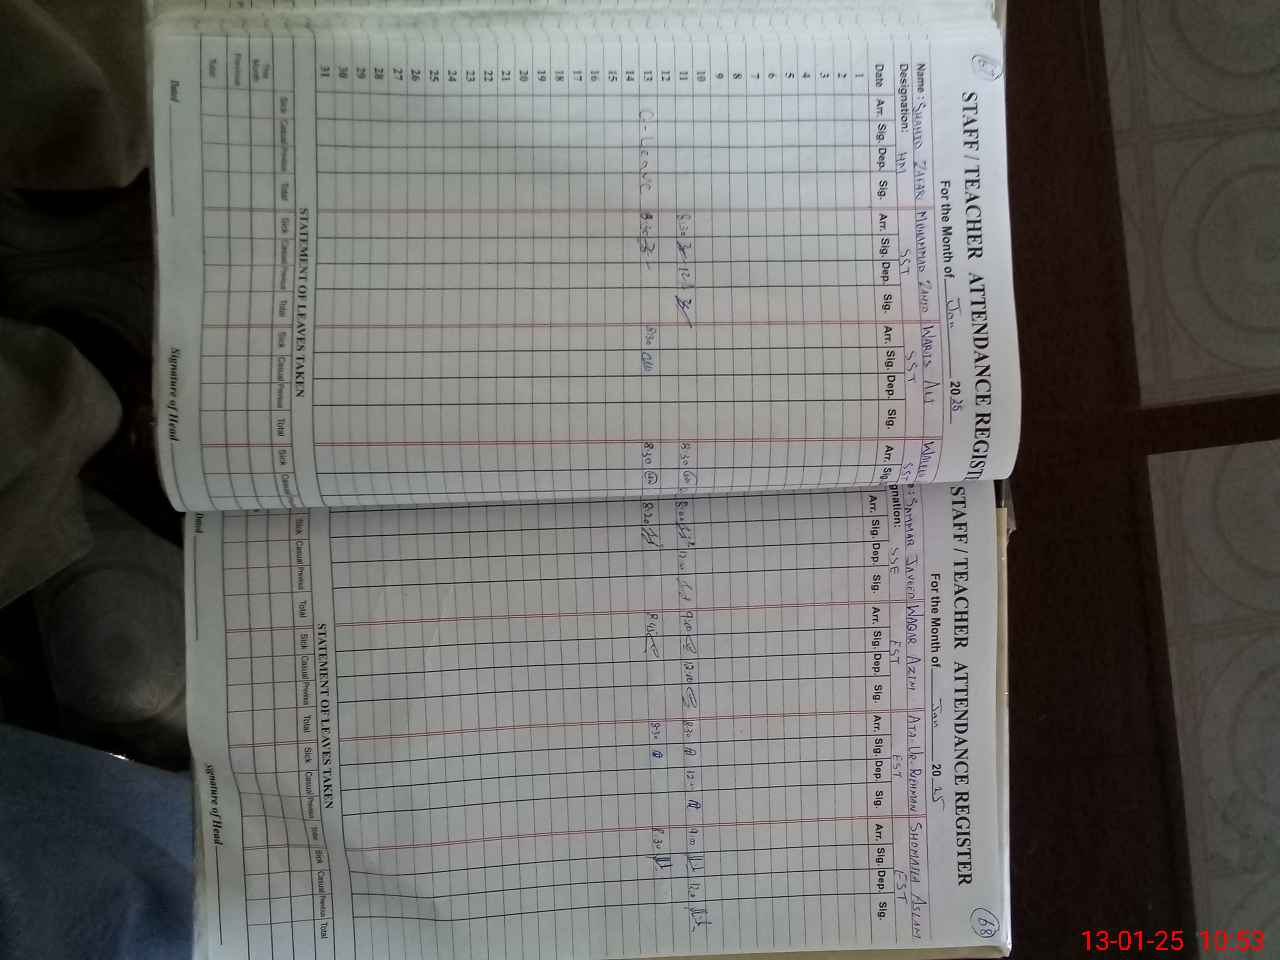 67
STAFF / TEACHER ATTENDANCE REGIST
For the Month of Jan 2025
Name : SHAHID ZAFAR MUHAMMAD ZAHID WARIS ALI
Designation: HM SST SST SST
Date Arr. Sig. Dep. Sig. Arr. Sig. Dep. Sig. Arr. Sig. Dep. Sig. Arr. Sig.
1
2
3
4
5
6
7
8
9
10
11 8:30 8:30
12
13 C-Leave 8:30 8:30 8:30
14
15
16
17
18
19
20
21
22
23
24
25
26
27
28
29
30
31
STATEMENT OF LEAVES TAKEN
Sick Casual Previous Total Sick Casual Previous Total Sick Casual Previous Total Sick Casual
This Month
Previous
Total
Dated Signature of Head
68
STAFF / TEACHER ATTENDANCE REGISTER
For the Month of Jan 2025
SAMMAR JAVEED WAQAR AZIM ATA-UR-REHMAN SHOMAILA ASLAM
gnation: SSE EST EST EST
Arr. Sig. Dep. Sig. Arr. Sig. Dep. Sig. Arr. Sig. Dep. Sig. Arr. Sig. Dep. Sig.
8:00 12:00 9:00 12:00 8:30 12:0 9:00 12:0
8:20 8:45 8:30 8:30
STATEMENT OF LEAVES TAKEN
Sick Casual Previous Total Sick Casual Previous Total Sick Casual Previous Total Sick Casual Previous Total
Dated Signature of Head
13-01-25 10:53